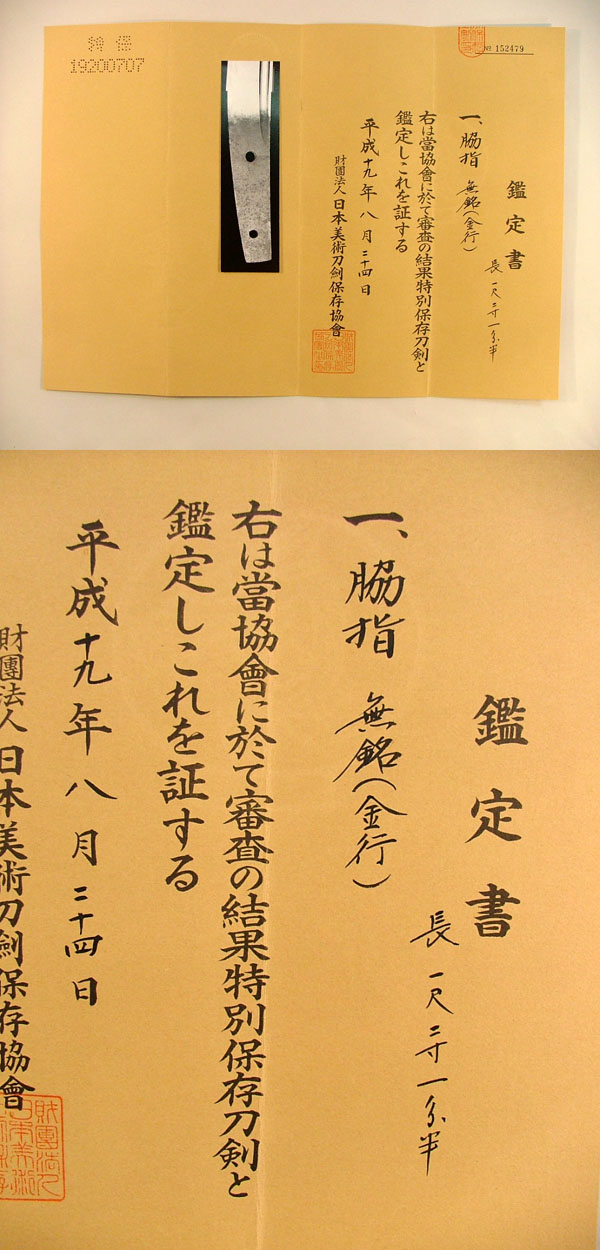 № 152479
鑑定書
一、脇指 無銘(金行)
長 一尺二寸一分半
右は當協會に於て審査の結果特別保存刀剣と
鑑定しこれを証する
平成十九年八月二十四日
財團法人日本美術刀劍保存協會
特保
19200707
鑑定書
長 一尺二寸一分半
一、脇指 無銘(金行)
右は當協會に於て審査の結果特別保存刀剣と
鑑定しこれを証する
平成十九年八月二十四日
財團法人日本美術刀劍保存協會